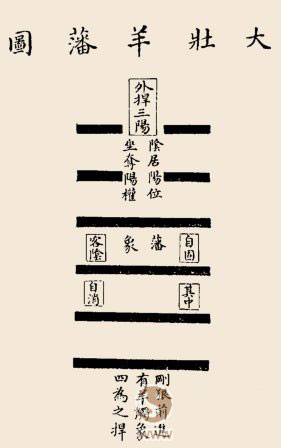 大壯羊藩圖
外捍三陽
陰居陽位
坐奪陽權
自固
藩象
客陰
其中
自消
剛狠前進
有羊觸象
四為之捍